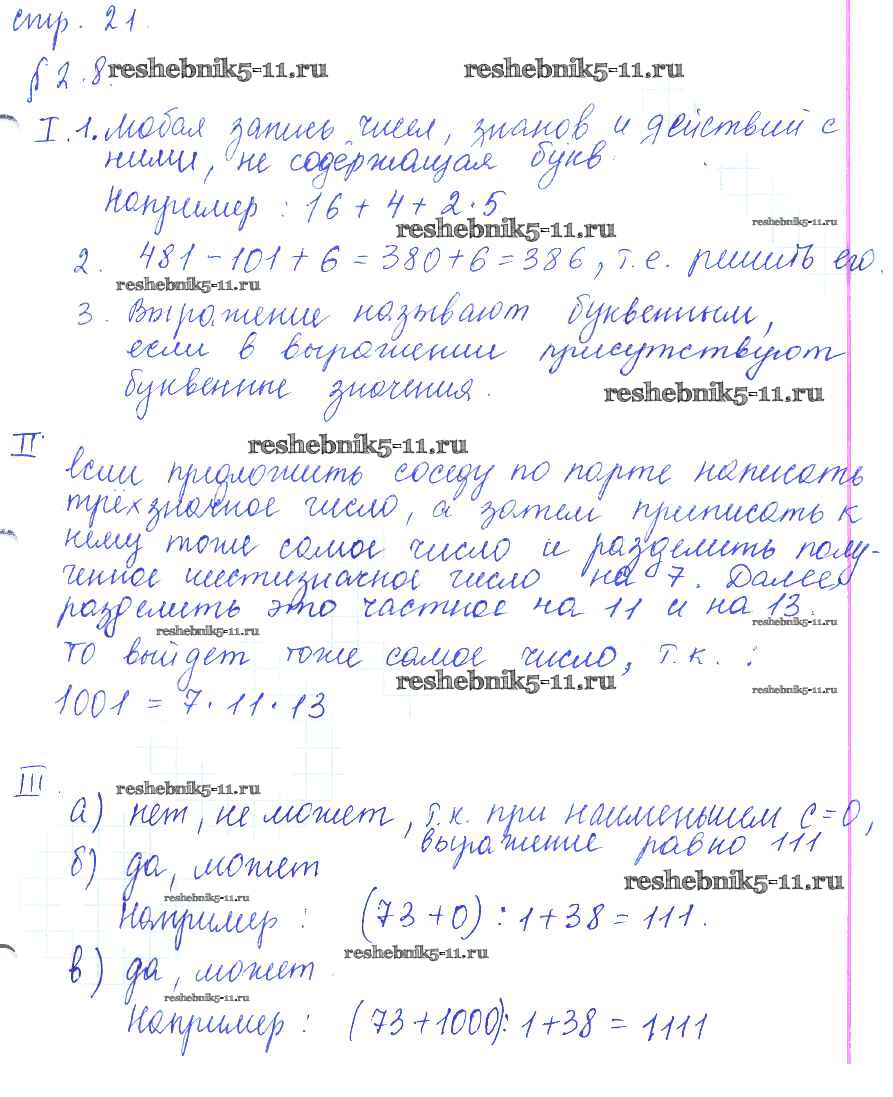 стр. 21.
§ 2.8. reshebnik5-11.ru reshebnik5-11.ru
I. 1. Любая запись чисел, знаков и действий с
ними, не содержащая букв.
Например : 16 + 4 + 2·5
reshebnik5-11.ru reshebnik5-11.ru
2. 481 - 101 + 6 = 380 + 6 = 386, т.е. решить его.
reshebnik5-11.ru
3. Выражение называют буквенным,
если в выражении присутствуют
буквенные значения. reshebnik5-11.ru
II. reshebnik5-11.ru
Если предложить соседу по парте написать
трёхзначное число, а затем приписать к
нему тоже самое число и разделить полу-
ченное шестизначное число на 7. Далее,
разделить это частное на 11 и на 13.
reshebnik5-11.ru reshebnik5-11.ru
То выйдет тоже самое число, т.к. :
reshebnik5-11.ru reshebnik5-11.ru
1001 = 7·11·13
III. reshebnik5-11.ru
а) нет, не может, т.к. при наименьшем с=0,
выражение равно 111
б) да, может
reshebnik5-11.ru reshebnik5-11.ru
Например : (73+0) : 1+38 = 111.
reshebnik5-11.ru
в) да, может
reshebnik5-11.ru
Например : (73+1000) : 1+38 = 1111